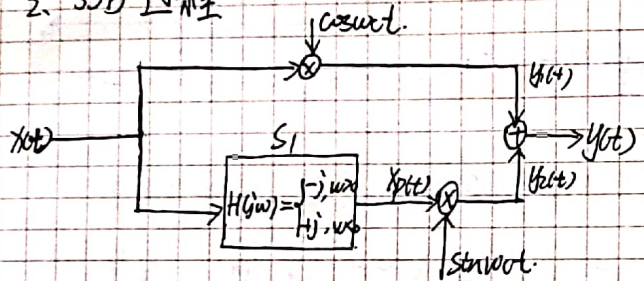 2、SSB
coswct.
y1(t)
x(t)
S1
y(t)
H(jw)={-j, w>0
+j, w<0
xp(t)
y2(t)
sinwct.